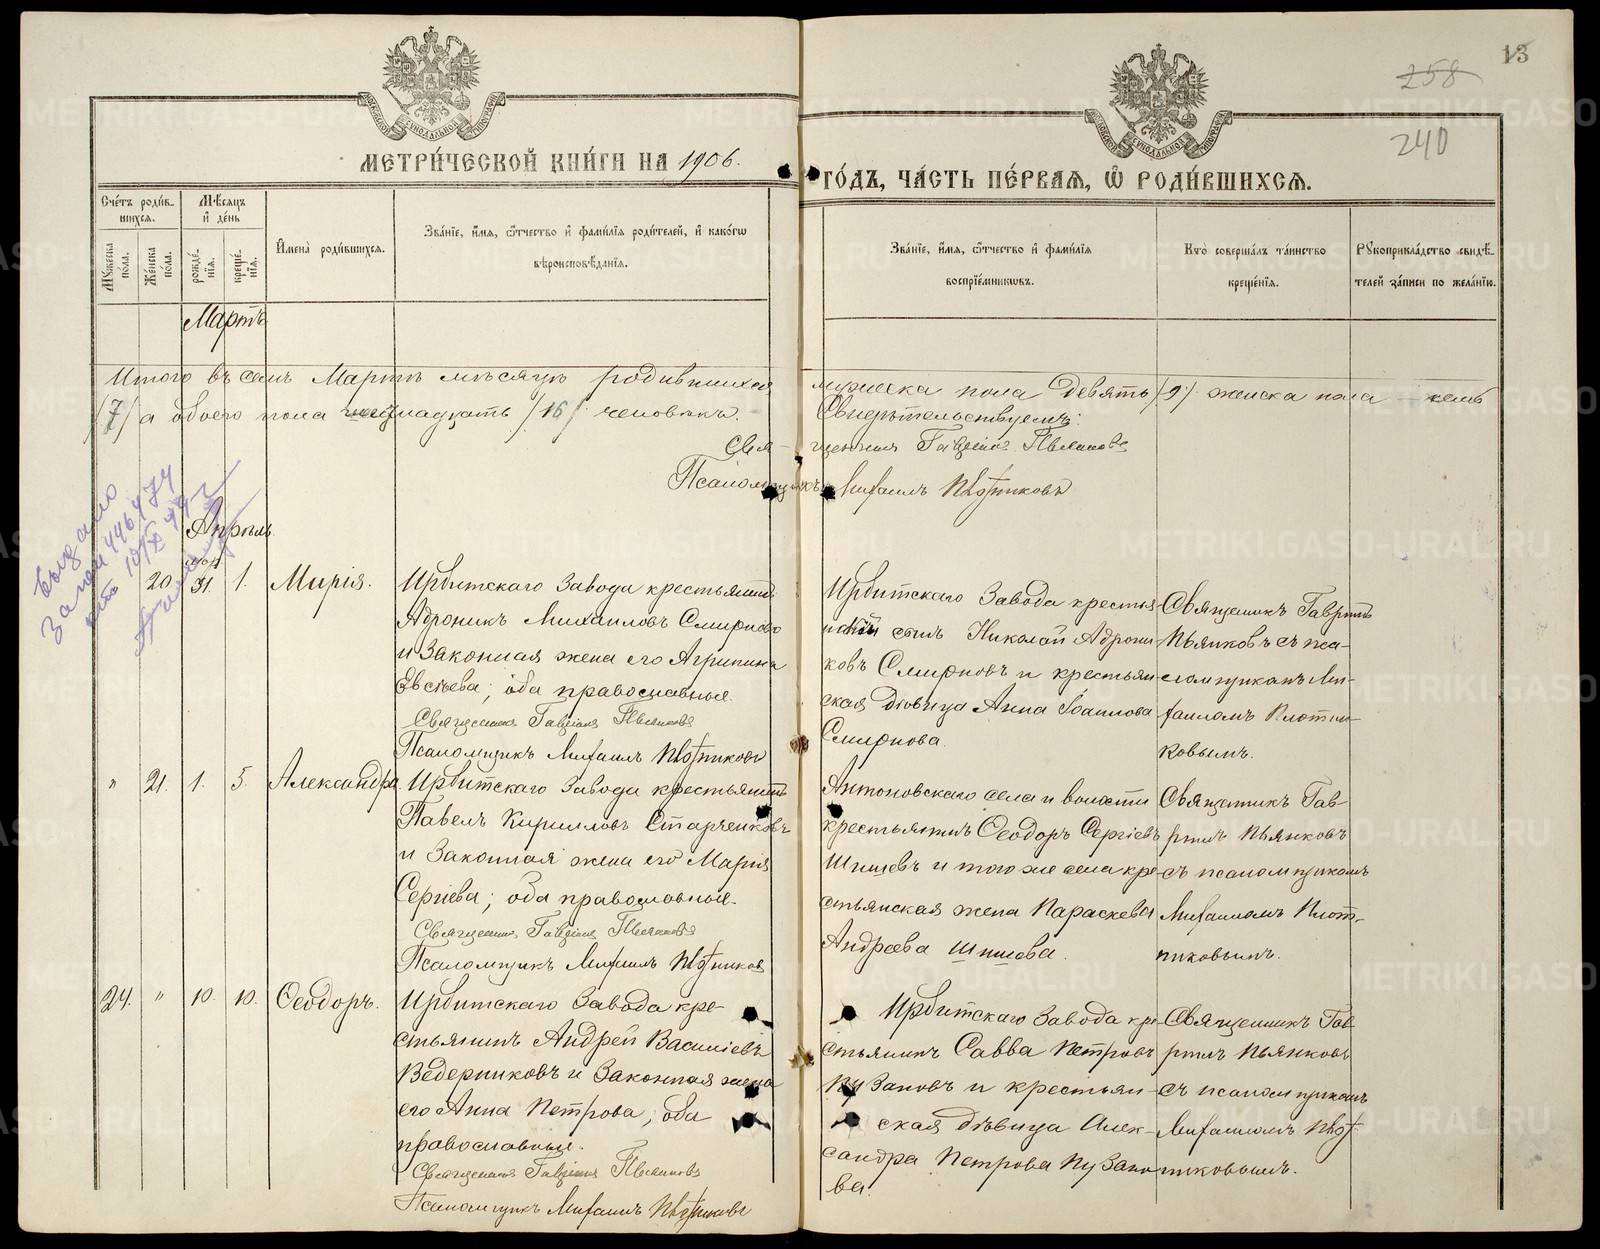 13
258
240
МЕТРИ́ЧЕСКОЙ КНИ́ГИ НА 1906.
ГО́ДЪ, ЧА́СТЬ ПЕ́РВАѦ, Ѽ РОДИ́ВШИХСѦ.
Сче́тъ роди́в-
шихсѧ.
Мѣ́сѧцъ
и҆ де́нь
Мꙋ́жеска
по́ла.
Же́нска
по́ла.
рожде́-
нїѧ.
креще́-
нїѧ.
И҆мена̀ роди́вшихсѧ.
Зва́нїе, и҆́мѧ, ѻ҆́тчество и҆ фами́лїѧ роди́телей, и҆ како́гѡ
вѣроисповѣ́данїѧ.
Зва́нїе, и҆́мѧ, ѻ҆́тчество и҆ фами́лїѧ
воспрїе́мникѡвъ.
Кто̀ соверша́лъ та́инство
креще́нїѧ.
Рꙋкоприкла́дство свидѣ́-
телей за́писи по жела́нїю.
Мартъ
Итого въ семъ Мартѣ мѣсяцѣ родившихся мужеска пола девять /9/ женска пола – семь
/7/ а обоего пола шестнадцать /16/ человѣкъ. Свидѣтельствуемъ:
Свя- щенникъ Гавріилъ Пьянковъ
Псаломщикъ Михаилъ Плотниковъ
Выдано
Апрѣль
20. март 31. 1. Марія.
Ирбитскаго Завода крестьянинъ
Адроникъ Михаиловъ Смирновъ
и Законная жена его Агрипина
Евсѣева; оба православные.
Священникъ Гавріилъ Пьянковъ
Псаломщикъ Михаилъ Плотниковъ
Ирбитскаго Завода крестья
скій сынъ Николай Адрони
ковъ Смирновъ и крестьян
ская дѣвица Анна Іоаннова
Смирнова.
Священникъ Гавріилъ
Пьянковъ съ пса-
ломщикомъ Ми-
хаиломъ Плотни-
ковымъ.
" 21. 1. 5. Александра.
Ирбитскаго Завода крестьянинъ
Павелъ Кирилловъ Старченковъ
и Законная жена его Марія
Сергіева; оба православные.
Священникъ Гавріилъ Пьянковъ
Псаломщикъ Михаилъ Плотниковъ
Антоновскаго села и волости
крестьянинъ Ѳеодоръ Сергіевъ
Шишевъ и того же села кре-
стьянская жена Параскева
Андреева Шишева.
Священникъ Гав-
ріилъ Пьянковъ
съ псаломщикомъ
Михаиломъ Плот-
никовымъ.
24. " 10. 10. Ѳеодоръ.
Ирбитскаго Завода кре-
стьянинъ Андрей Василіевъ
Ведерниковъ и Законная жена
его Анна Петрова; оба
православные.
Священникъ Гавріилъ Пьянковъ
Псаломщикъ Михаилъ Плотниковъ
Ирбитскаго Завода кре-
стьянинъ Савва Петровъ
Пузановъ и крестьян-
ская дѣвица Алек-
сандра Петрова Пузано-
ва.
Священникъ Гав-
ріилъ Пьянковъ
съ псаломщикомъ
Михаиломъ Плот-
никовымъ.